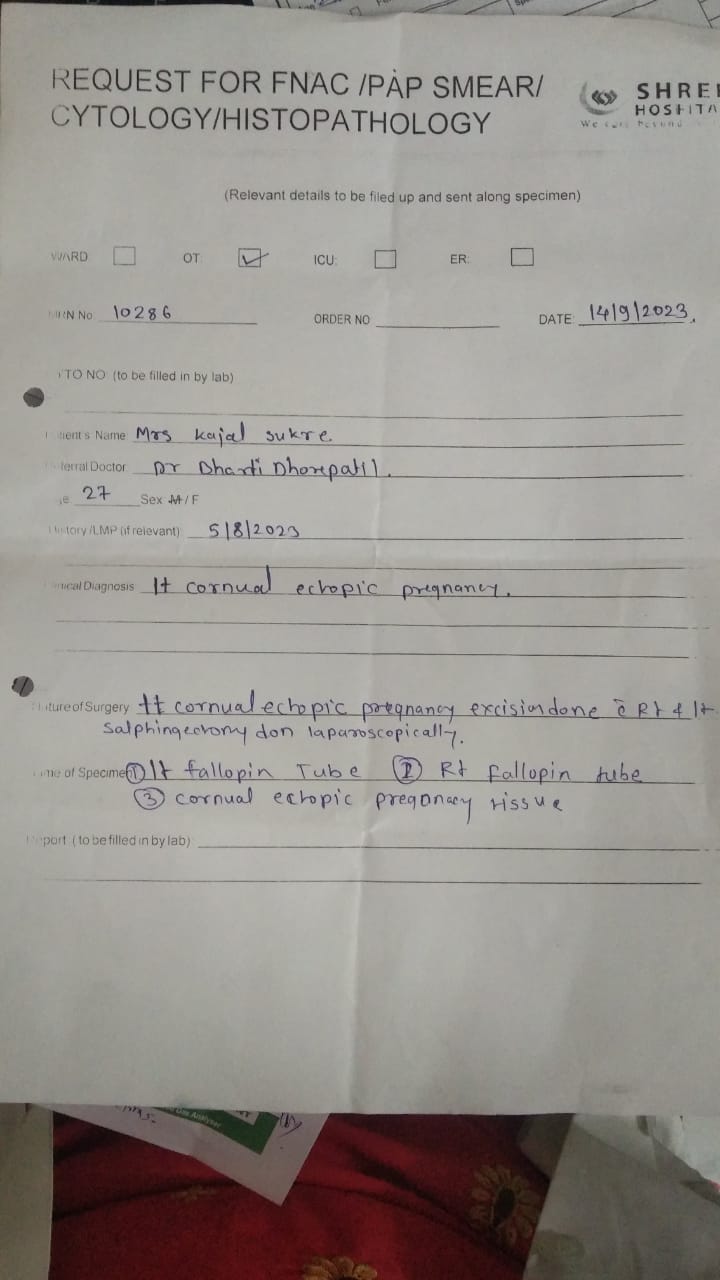 REQUEST FOR FNAC /PAP SMEAR/
CYTOLOGY/HISTOPATHOLOGY
SHREE
HOSPITA
We
(Relevant details to be filed up and sent along specimen)
WARD OT: ICU: ER:
MRN No 10286 ORDER NO DATE: 14/9/2023
TO NO (to be filled in by lab)
ient's Name Mrs Kajal sukre
ferral Doctor Dr Dharti Dhorepatil.
e 27 Sex M/F
History /LMP (if relevant) 5/8/2023
nical Diagnosis lt cornual ectopic pregnancy.
ature of Surgery lt cornual echopic pregnancy excision done c̄ Rt & lt
salphingectomy don laparoscopically.
me of Specimen ① lt fallopin Tube ② Rt fallopin tube
③ cornual ectopic pregonacy tissue
eport (to be filled in by lab)
Gas Analyser